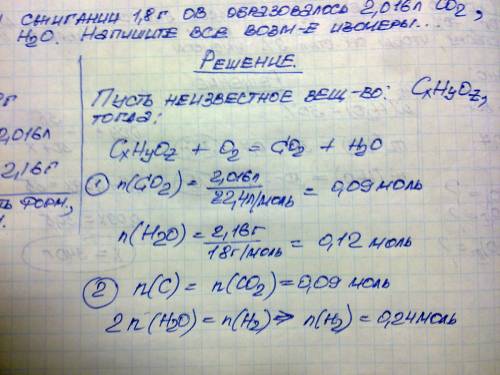 сжигании 1,8г ОВ образовалось 2,016л CO2,
H2O. Напишите все возм-е изомеры...
Решение.
2,016л
2,16г
Пусть неизвестное вещ-во: CxHyOz,
тогда:
CxHyOz + O2 = CO2 + H2O
① n(CO2) = 2,016л / 22,4л/моль = 0,09 моль
n(H2O) = 2,16г / 18г/моль = 0,12 моль
② n(C) = n(CO2) = 0,09 моль
2n(H2O) = n(H2) ⇒ n(H2) = 0,24моль